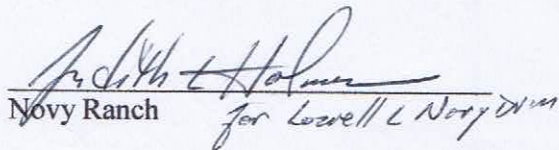 Judith L Holmes
Novy Ranch for Lowell L Novy DVM